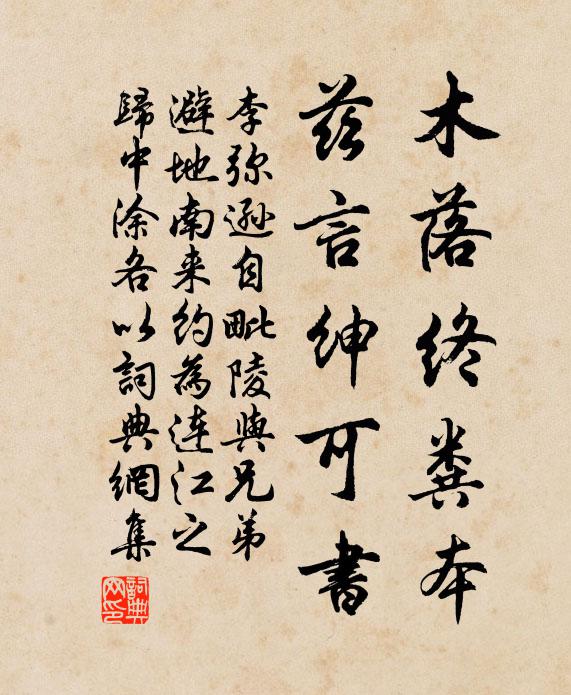 木落终粪本
兹言绅可书
李弥逊自毗陵與兄弟
避地南来约為连江之
歸中涂各以詞典網集
詞典网印